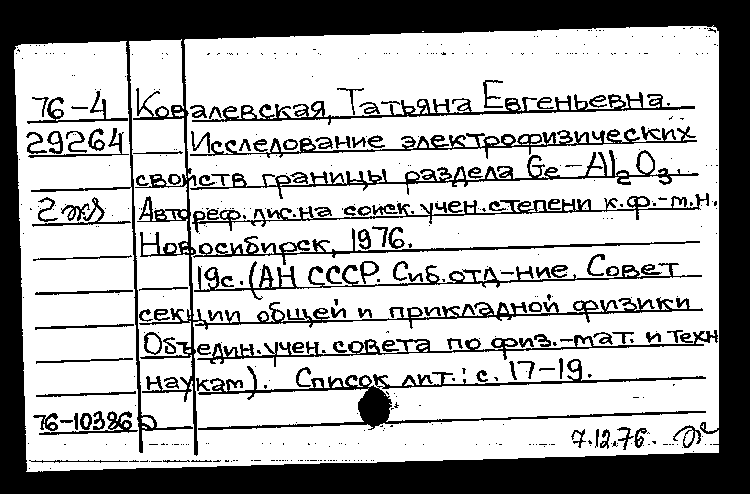 76-4 Ковалевская, Татьяна Евгеньевна.
29264 Исследование электрофизических
свойств границы раздела Ge-Al₂O₃.
2 экз Автореф. дис. на соиск. учен. степени к.ф.-м.н.
Новосибирск, 1976.
19с. (АН СССР. Сиб. отд-ние, Совет
секции общей и прикладной физики
Объедин. учен. совета по физ.-мат. и техн
наукам). Список лит.: с. 17-19.
76-10386
7.12.76.